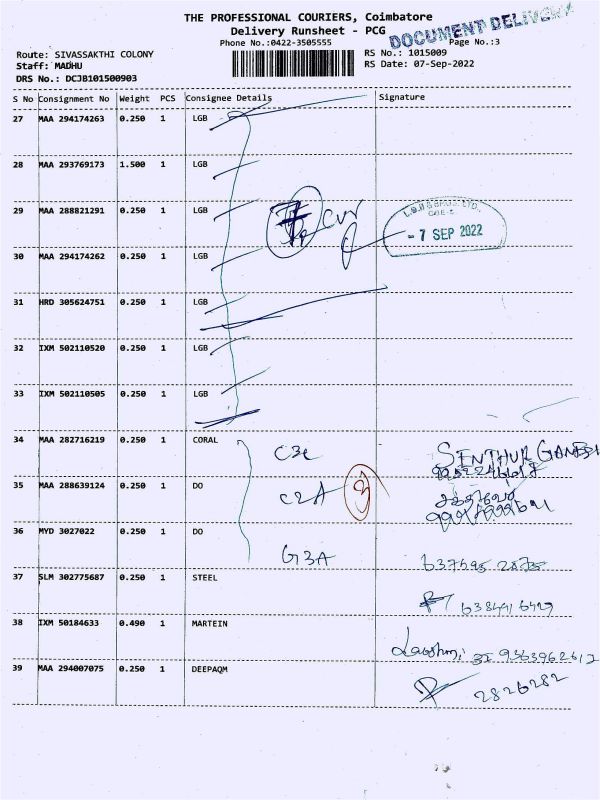 THE PROFESSIONAL COURIERS, Coimbatore
Delivery Runsheet - PCG
DOCUMENT DELIVERY
Phone No.:0422-3505555
Page No.:3
Route: SIVASSAKTHI COLONY
RS No.: 1015009
Staff: MADHU
RS Date: 07-Sep-2022
DRS No.: DCJB101500903
S No Consignment No Weight PCS Consignee Details Signature
27 MAA 294174263 0.250 1 LGB
28 MAA 293769173 1.500 1 LGB
29 MAA 288821291 0.250 1 LGB
- 7 SEP 2022
30 MAA 294174262 0.250 1 LGB
31 HRD 305624751 0.250 1 LGB
32 IXM 502110520 0.250 1 LGB
33 IXM 502110505 0.250 1 LGB
34 MAA 282716219 0.250 1 CORAL
SENTHUR
35 MAA 288639124 0.250 1 DO
C2A 3
36 MYD 3027022 0.250 1 DO
G3A
37 SLM 302775687 0.250 1 STEEL
38 IXM 50184633 0.490 1 MARTEIN
39 MAA 294007075 0.250 1 DEEPAQM
2826282